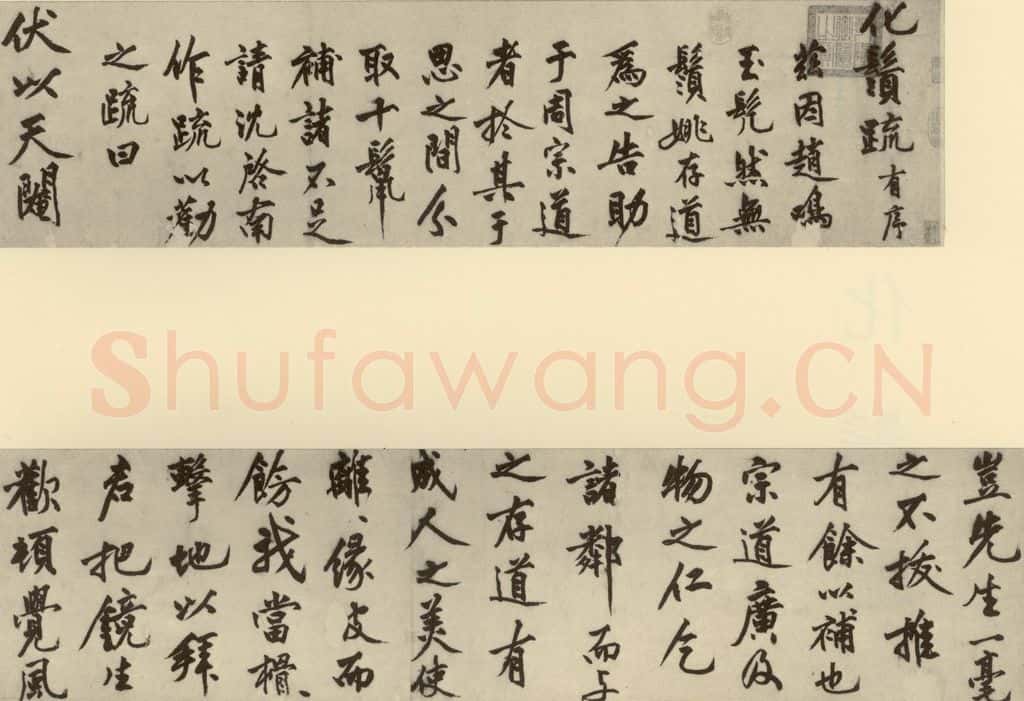 化鬚疏有序
茲因趙鳴
玉髠然無
鬚姚存道
為之告助
于周宗道
者於其于
思之間分
取十鬣
補諸不足
請沈啓南
作疏以勸
之疏曰
伏以天閹
Shufawang.CN
豈先生一毫
之不拔推
有餘以補也
宗道廣及
物之仁乞
諸鄰而与
之存道有
成人之美使
離、緣皮而
飾我當搰、
擊地以拜
君把鏡生
歡頓覺風